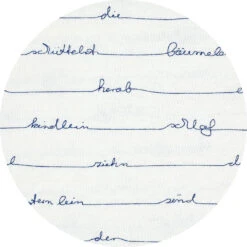 die
schüttelt bäumela
herab
kindlein schlaf
e ziehn d
ternlein sind
den